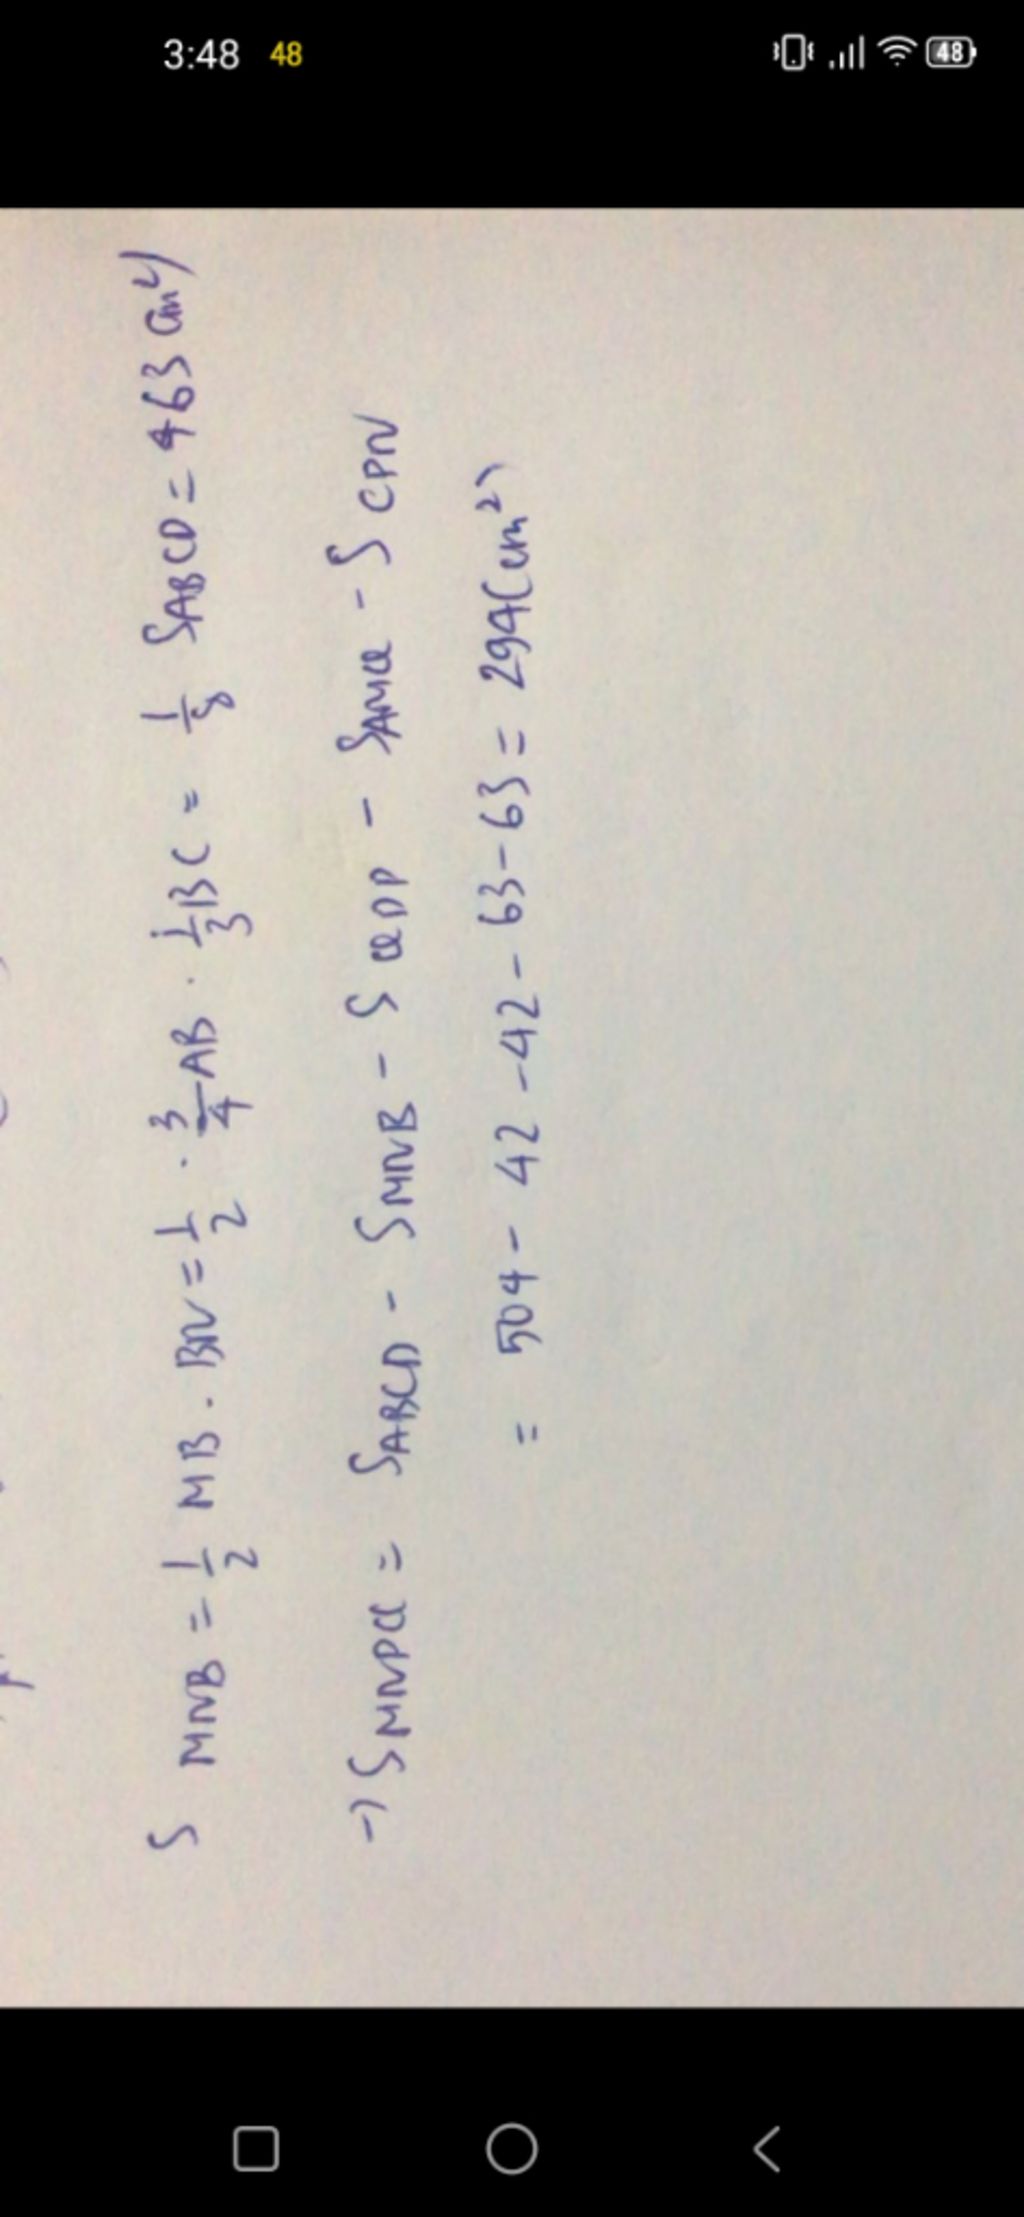 3:48 48 48
S MNB = 1/2 MB . BN = 1/2 . 3/4 AB . 1/3 BC = 1/8 SABCD = 463 cm²)
→ S MNPQ = SABCD - SMNB - S QDP - SAMQ - S CPN
= 504 - 42 - 42 - 63 - 63 = 294 (cm²)